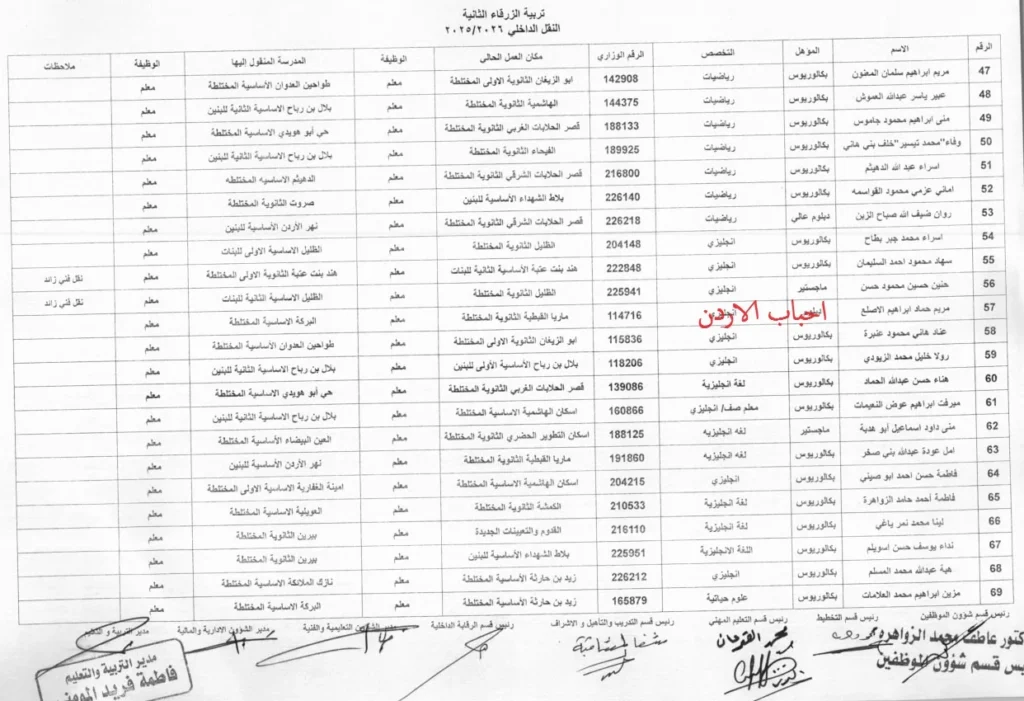 تربية الزرقاء الثانية
النقل الداخلي ٢٠٢٥/٢٠٢٦
الرقم الاسم المؤهل التخصص الرقم الوزاري مكان العمل الحالي الوظيفة المدرسة المنقول إليها الوظيفة ملاحظات
47 مريم ابراهيم سلمان المعنون بكالوريوس رياضيات 142908 ابو الزيغان الثانوية الاولى المختلطة معلم طواحين العدوان الأساسية المختلطة معلم
48 عبير ياسر عبدالله العموش بكالوريوس رياضيات 144375 الهاشمية الثانوية المختلطة معلم بلال بن رباح الاساسية الثانية للبنين معلم
49 منى ابراهيم محمود جاموس بكالوريوس رياضيات 188133 قصر الحلابات الغربي الثانوية المختلطة معلم حي أبو هويدي الاساسية المختلطة معلم
50 وفاء"محمد تيسير"خلف بني هاني بكالوريوس رياضيات 189925 الفيحاء الثانوية المختلطة معلم بلال بن رباح الاساسية الثانية للبنين معلم
51 اسراء عبد الله الدهيثم بكالوريوس رياضيات 216800 قصر الحلابات الشرقي الثانوية المختلطة معلم الدهيثم الاساسيه المختلطه معلم
52 اماني عزمي محمود القواسمه بكالوريوس رياضيات 226140 بلاط الشهداء الأساسية للبنين معلم صروت الثانوية المختلطة معلم
53 روان ضيف الله صباح الزبن دبلوم عالي رياضيات 226218 قصر الحلابات الشرقي الثانوية المختلطة معلم نهر الأردن الأساسية للبنين معلم
54 اسراء محمد جبر بطاح بكالوريوس انجليزي 204148 الظليل الثانوية المختلطة معلم الظليل الاساسية الاولى للبنات معلم
55 سهاد محمود احمد السليمان بكالوريوس انجليزي 222848 هند بنت عتبة الأساسية الثانية للبنات معلم هند بنت عتبة الثانوية الاولى المختلطة معلم نقل فني زائد
56 حنين حسين محمود حسن ماجستير انجليزي 225941 الظليل الثانوية المختلطة معلم الظليل الاساسية الثانية للبنات معلم نقل فني زائد
57 مريم حماد ابراهيم الاصلع 114716 ماريا القبطية الثانوية المختلطة معلم البركة الاساسية المختلطة معلم
احباب الاردن
58 عناد هاني محمود عنبرة بكالوريوس انجليزي 115836 ابو الزيغان الثانوية الاولى المختلطة معلم طواحين العدوان الأساسية المختلطة معلم
59 رولا خليل محمد الزيودي بكالوريوس انجليزي 118206 بلال بن رباح الأساسية الأولى للبنين معلم بلال بن رباح الاساسية الثانية للبنين معلم
60 هناء حسن عبدالله الحماد بكالوريوس لغة انجليزية 139086 قصر الحلابات الغربي الثانوية المختلطة معلم حي أبو هويدي الاساسية المختلطة معلم
61 ميرفت ابراهيم عوض النعيمات بكالوريوس معلم صف/ انجليزي 160866 اسكان الهاشمية الاساسية المختلطة معلم بلال بن رباح الاساسية الثانية للبنين معلم
62 منى داود اسماعيل أبو هدبة ماجستير لغه انجليزيه 188125 اسكان التطوير الحضري الثانوية المختلطة معلم العين البيضاء الأساسية المختلطة معلم
63 امل عودة عبدالله بني صخر بكالوريوس لغه انجليزيه 191860 ماريا القبطية الثانوية المختلطة معلم نهر الأردن الأساسية للبنين معلم
64 فاطمة حسن احمد ابو صيني بكالوريوس انجليزي 204215 اسكان الهاشمية الاساسية المختلطة معلم امينة الغفارية الاساسية الاولى المختلطة معلم
65 فاطمة أحمد حامد الزواهرة بكالوريوس لغة انجليزية 210533 الكمشة الثانوية المختلطة معلم العويلية الاساسية المختلطة معلم
66 لينا محمد نمر ياغي بكالوريوس لغة انجليزية 216110 القدوم والتعيينات الجديدة معلم بيرين الثانوية المختلطة معلم
67 نداء يوسف حسن اسويلم بكالوريوس اللغة الانجليزية 225951 بلاط الشهداء الأساسية للبنين معلم بيرين الثانوية المختلطة معلم
68 هبة عبدالله محمد المسلم بكالوريوس انجليزي 226212 زيد بن حارثة الأساسية المختلطة معلم نازك الملائكة الاساسية المختلطة معلم
69 مزين ابراهيم محمد العلامات بكالوريوس علوم حياتية 165879 زيد بن حارثة الأساسية المختلطة معلم البركة الاساسية المختلطة معلم
رئيس قسم شؤون الموظفين رئيس قسم التخطيط رئيس قسم التعليم المهني رئيس قسم التدريب والتأهيل و الاشراف رئيس قسم الرقابة الداخلية مدير الشؤون التعليمية والفنية مدير الشؤون الادارية والمالية مدير التربية و التعليم
كتور عاطف محمد الزواهره
يس قسم شؤون الموظفين
مدير التربية والتعليم
فاطمة فريد المومني